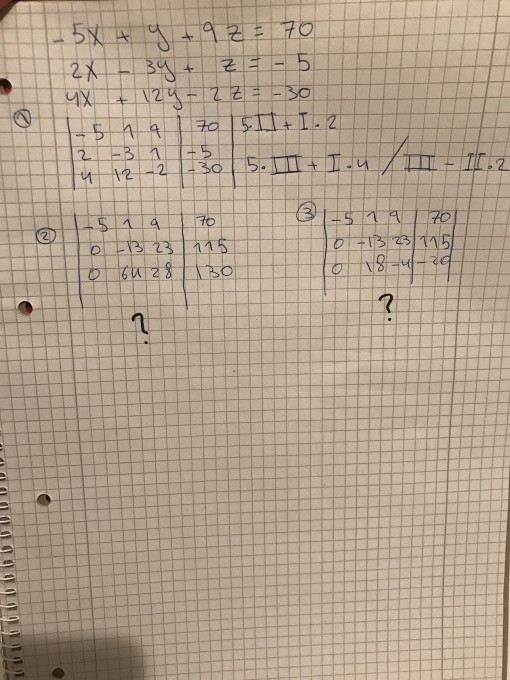 -5x + y + 9z = 70
2x - 3y + z = -5
4x + 12y - 2z = -30
①
-5 1 9 | 70 | 5·II + I·2
2 -3 1 | -5
4 12 -2 | -30 | 5·III + I·4 / III - II·2
②
-5 1 9 | 70
0 -13 23 | 115
0 64 28 | 130
?
③
-5 1 9 | 70
0 -13 23 | 115
0 18 -4 | -20
?